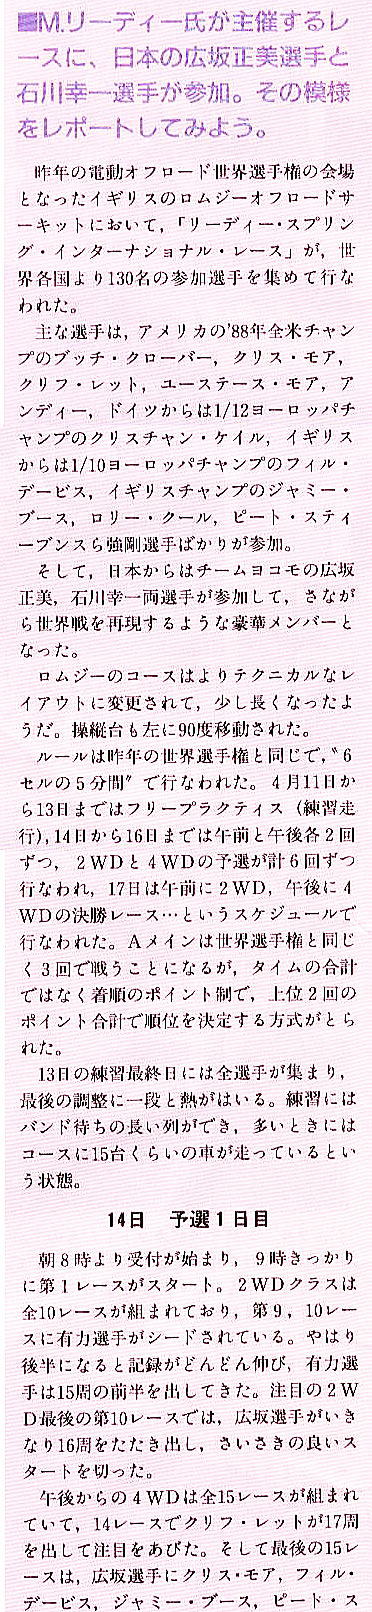 ■M.リーディー氏が主催するレ
ースに、日本の広坂正美選手と
石川幸一選手が参加。その模様
をレポートしてみよう。
昨年の電動オフロード世界選手権の会場
となったイギリスのロムジーオフロードサ
ーキットにおいて，「リーディー・スプリン
グ・インターナショナル・レース」が，世
界各国より130名の参加選手を集めて行な
われた。
主な選手は，アメリカの'88年全米チャン
プのブッチ・クローバー，クリス・モア，
クリフ・レット，ユーステース・モア，ア
ンディー，ドイツからは1/12ヨーロッパチ
ャンプのクリスチャン・ケイル，イギリス
からは1/10ヨーロッパチャンプのフィル・
デービス，イギリスチャンプのジャミー・
ブース，ロリー・クール，ピート・スティ
ーブンスら強剛選手ばかりが参加。
そして，日本からはチームヨコモの広坂
正美，石川幸一両選手が参加して，さなが
ら世界戦を再現するような豪華メンバーと
なった。
ロムジーのコースはよりテクニカルなレ
イアウトに変更されて，少し長くなったよ
うだ。操縦台も左に90度移動された。
ルールは昨年の世界選手権と同じで，〝6
セルの5分間〞で行なわれた。4月11日か
ら13日まではフリープラクティス（練習走
行），14日から16日までは午前と午後各2回
ずつ，2WDと4WDの予選が計6回ずつ
行なわれ，17日は午前に2WD，午後に4
WDの決勝レース…というスケジュールで
行なわれた。Aメインは世界選手権と同じ
く3回で戦うことになるが，タイムの合計
ではなく着順のポイント制で，上位2回の
ポイント合計で順位を決定する方式がとら
れた。
13日の練習最終日には全選手が集まり，
最後の調整に一段と熱がはいる。練習には
バンド待ちの長い列ができ，多いときには
コースに15台くらいの車が走っているとい
う状態。
14日　予選1日目
朝8時より受付が始まり，9時きっかり
に第1レースがスタート。2WDクラスは
全10レースが組まれており，第9，10レー
スに有力選手がシードされている。やはり
後半になると記録がどんどん伸び，有力選
手は15周の前半を出してきた。注目の2W
D最後の第10レースでは，広坂選手がいき
なり16周をたたき出し，さいさきの良いス
タートを切った。
午後からの4WDは全15レースが組まれ
ていて，14レースでクリフ・レットが17周
を出して注目をあびた。そして最後の15レ
ースは，広坂選手にクリス・モア，フィル・
デービス，ジャミー・ブース，ピード・ス